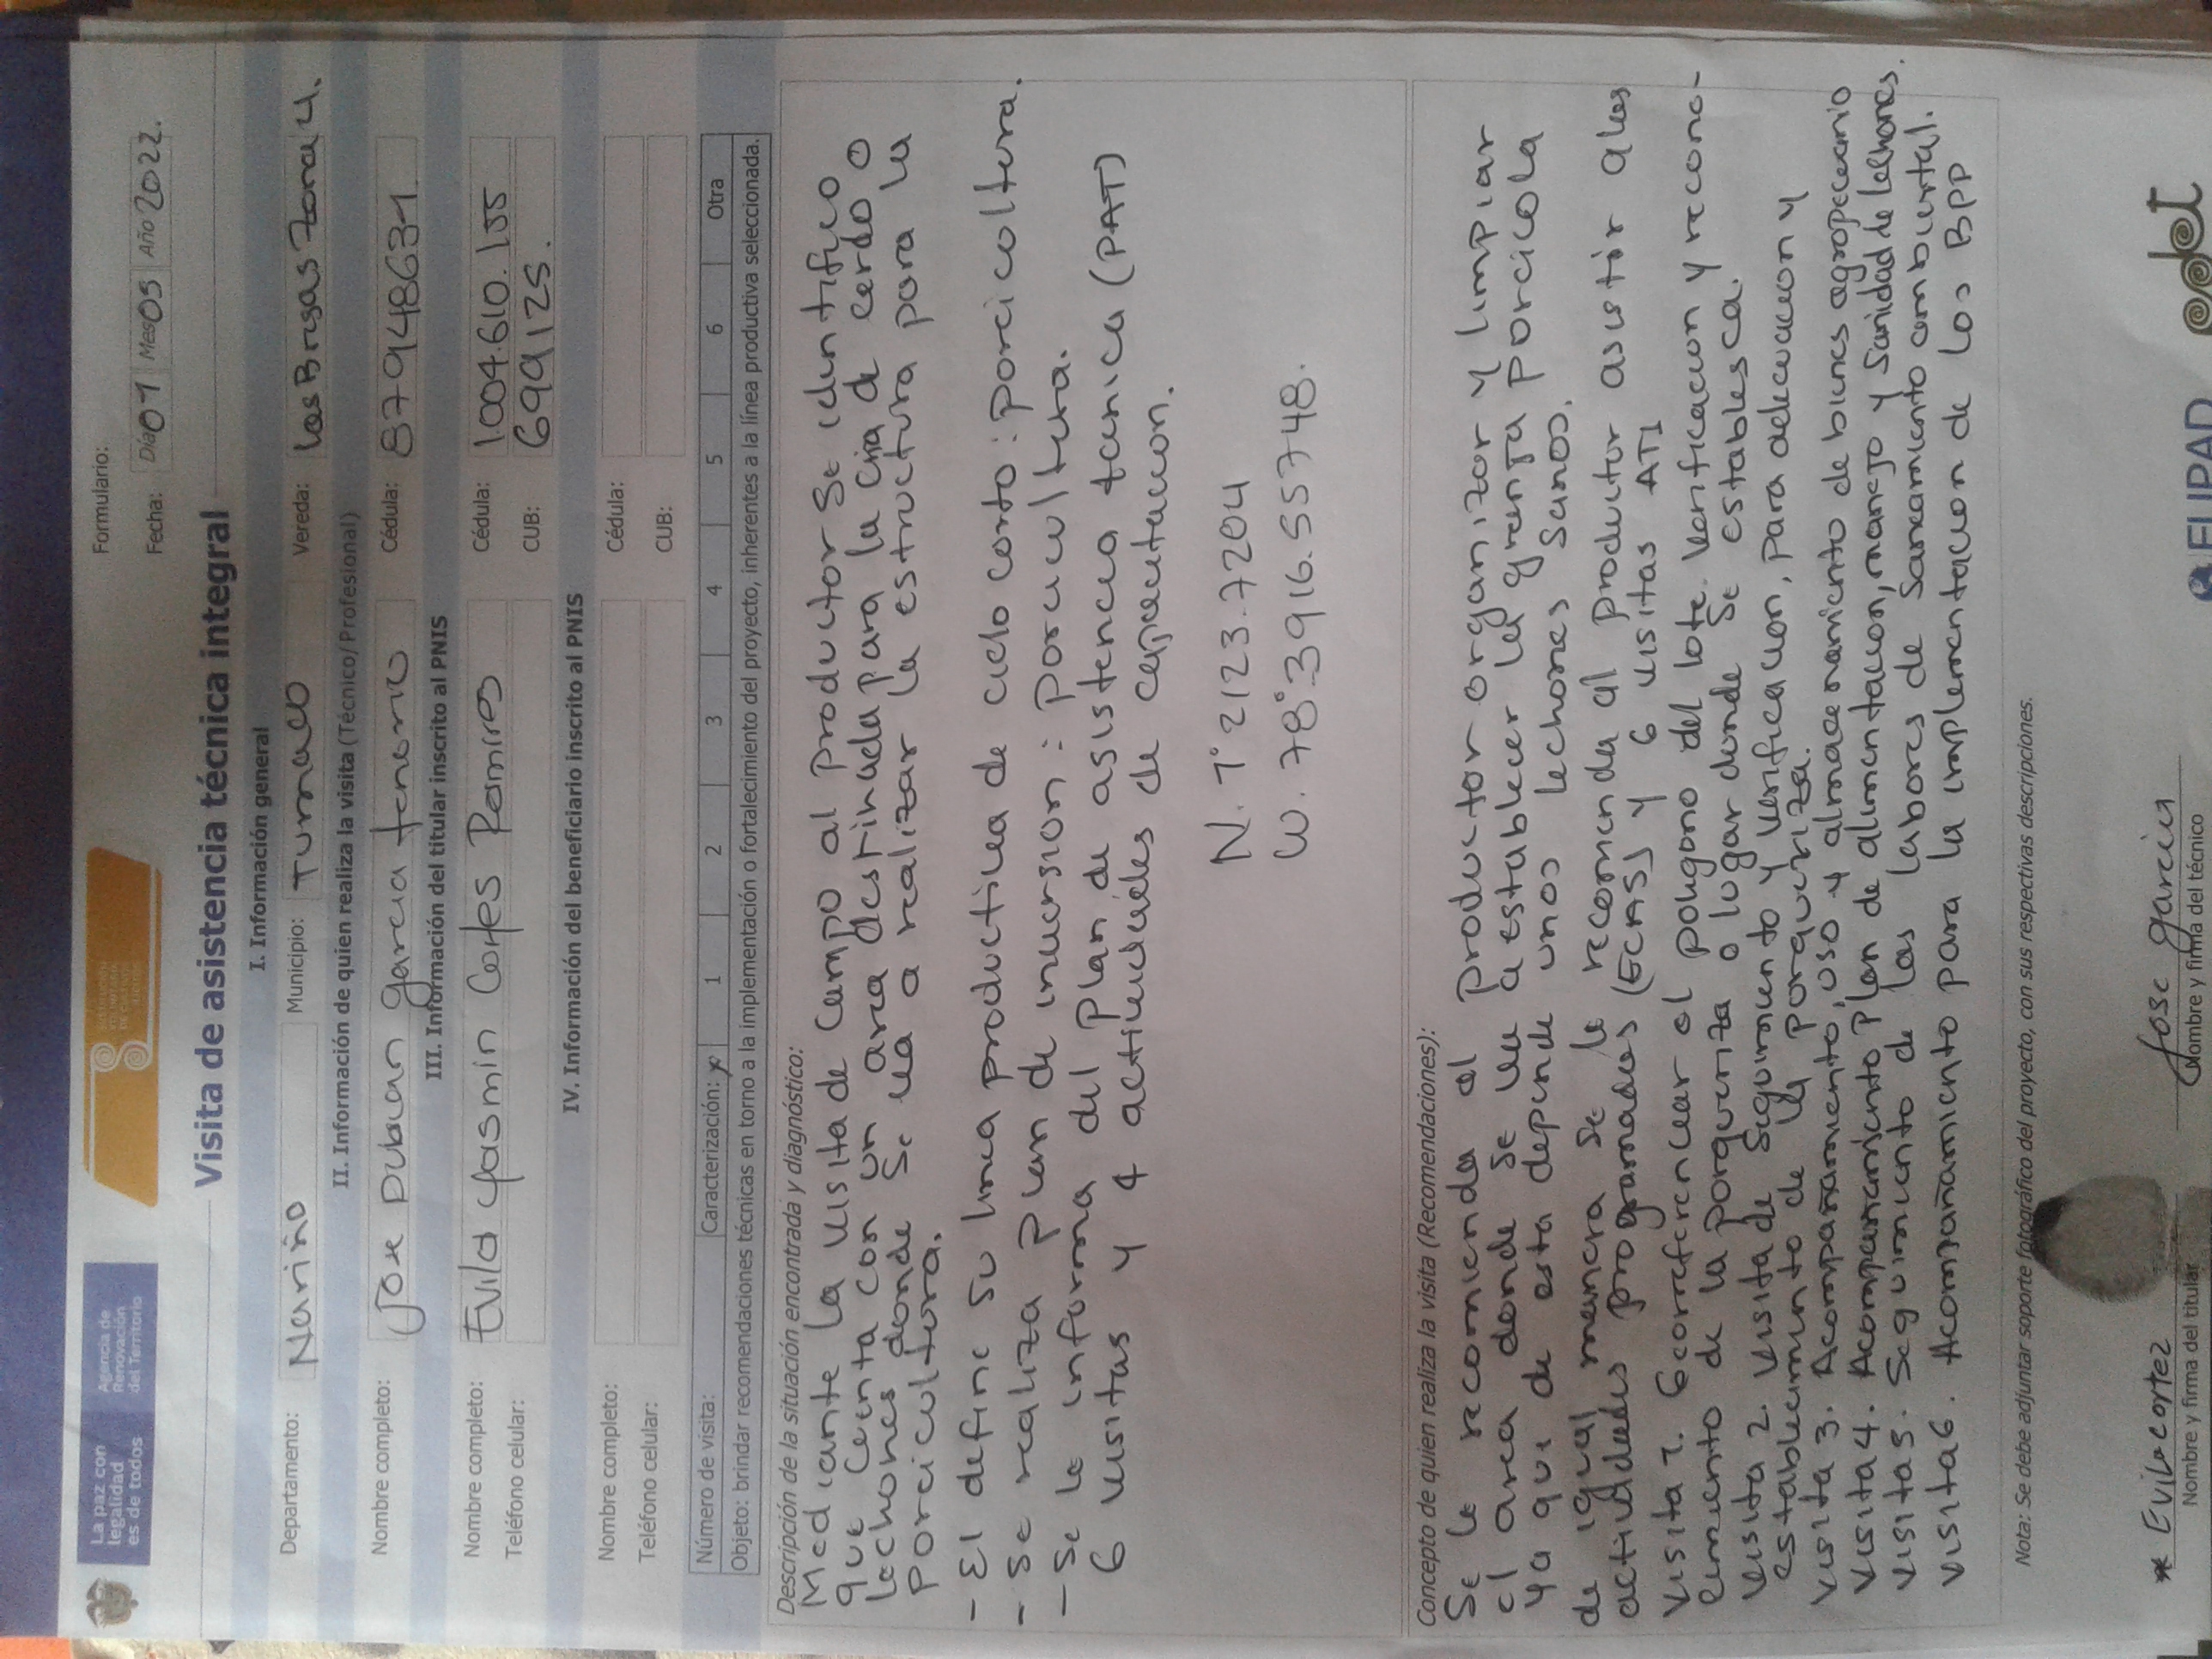 La paz con
legalidad
es de todos
Agencia de
Renovación
del Territorio
Formulario:
Fecha: Día 01 Mes 05 Año 2022.
Visita de asistencia técnica integral
I. Información general
Departamento: Nariño Municipio: Tumaco Vereda: las Brisas Zona 4.
II. Información de quien realiza la visita (Técnico/ Profesional)
Nombre completo: Jose Dubian garcia tenorio Cédula: 87948631
III. Información del titular inscrito al PNIS
Nombre completo: Evila Yasmin Cortes Ramires Cédula: 1.004.610.155
Teléfono celular: CUB: 699125.
IV. Información del beneficiario inscrito al PNIS
Nombre completo: Cédula:
Teléfono celular: CUB:
Número de visita: Caracterización: x 1 2 3 4 5 6 Otra
Objeto: brindar recomendaciones técnicas en torno a la implementación o fortalecimiento del proyecto, inherentes a la línea productiva seleccionada.
Descripción de la situación encontrada y diagnóstico:
Mediante la visita de campo al productor se identifico
que cuenta con un area destinada para la cria de cerdo o
lechones donde se va a realizar la estructura para la
porcicultura.
- El define su linea productiva de ciclo corto: porcicoltura.
- se realiza plan de inversion: porcicultura.
- se le informa del plan de asistencia tecnica (PAT)
6 visitas y 4 actividades de capacitacion.
N. 1° 2123.7204
W. 78° 3916.557748.
Concepto de quien realiza la visita (Recomendaciones):
Se le recomienda al productor organizar y limpiar
el area donde se va a establecer la granja porcicola
ya que de esta depende unos lechones sanos.
de igual manera se le recomienda al productor asistir a les
actividades programades (ECAS) y 6 visitas ATI
visita 1. Georeferenciar el poligono del lote. verificacion y recono-
cimiento de la porqueriza o lugar donde se establesca.
visita 2. visita de seguimiento y verificacion, para adecuacion y
establecimiento de la porqueriza.
visita 3. Acompañamiento, uso y almacenamiento de bienes agropecuario
visita 4. Acompañamiento plan de alimentacion, manejo y sanidad de lechones.
visita 5. Seguimiento de las labores de saneamiento ambiental.
visita 6. Acompañamiento para la implementacion de los BPP
Nota: Se debe adjuntar soporte fotográfico del proyecto, con sus respectivas descripciones.
* Evila cortez
Nombre y firma del titular
Jose garcia
Nombre y firma del técnico
ELIPAD